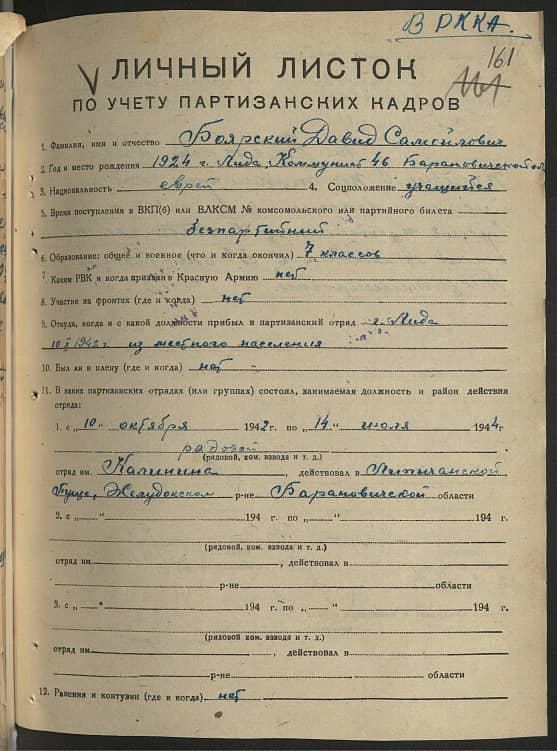 В РККА.
161
ЛИЧНЫЙ ЛИСТОК
ПО УЧЕТУ ПАРТИЗАНСКИХ КАДРОВ
1. Фамилия, имя и отчество Боярский Давид Самойлович
2. Год и место рождения 1924 г. Лида, Коммунист 46 Барановичской
3. Национальность еврей 4. Соцположение учащийся
5. Время поступления в ВКП(б) или ВЛКСМ № комсомольского или партийного билета
безпартийный
6. Образование: общее и военное (что и когда окончил) 7 классов
7. Каким РВК и когда призван в Красную Армию нет
8. Участие на фронтах (где и когда) нет
9. Откуда, когда и с какой должности прибыл в партизанский отряд г. Лида
из местного населения
10. Был ли в плену (где и когда) нет
11. В каких партизанских отрядах (или группах) состоял, занимаемая должность и район действия
отряда:
1. с „10" октября 1942 г. по „14" июля 1944 г.
рядовой
(рядовой, ком. взвода и т. д.)
отряд им. Калинина, действовал в Липичанской
Пуще, Желудокском р-не Барановичской области
2. с „ " 194 г. по „ " 194 г.
(рядовой, ком. взвода и т. д.)
отряд им. , действовал в
р-не области
3. с „ " 194 г. по „ " 194 г.
(рядовой, ком. взвода и т. д.)
отряд им. , действовал в
р-не области
12. Ранения и контузии (где и когда) нет